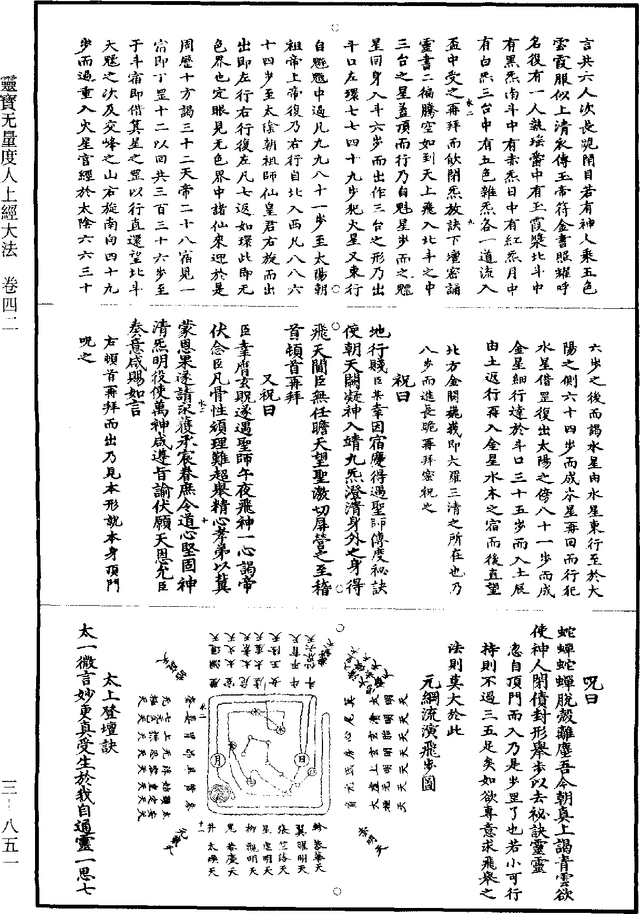 言共六人次長跪閉目若有神人乘五色
雲霞服似上清衣傳玉帝符金書照耀呼
名後有一人執瑤觴中有玉霞漿北斗中
有黑炁南斗中有赤炁日中有紅炁月中
有白炁三台中有五色雜炁各一道流入
盃中受之再拜而飲閉炁放訣下壇密誦
靈書二徧騰空如到天上飛入北斗之中
三台之星蓋頂而行乃自魁星步而之魒
星同身入斗六步而出作三台之形乃出
斗口左環七七四十九步犯火星又東行
自魒魁中過凡九九八十一步至太陽朝
祖帝上帝復乃右行自北入西凡八八六
十四步至太陰朝祖師仙皇君右旋而出
出即左行右行復左凡七返如環此即无
色界也定眼見无色界中諸仙來迎於是
周歷十方謁三十二天帝二十八宿見一
宿即丁罡十二以四共三百三十六步至
于斗宿即借箕星之罡以行直還望北斗
天魁之次及交峰之山右旋南向四十九
步而過重入火星宫經於太陰六六三十
六步之後而謁水星由水星東行至於大
陽之側六十四步而成木星再回而行犯
水星借罡復出太陽之傍八十一步而成
金星細行達於斗口三十五步而入土辰
由土返行再入金星水木之宿而後直望
北方金闕巍莪即大羅三清之所在也乃
八步而進長跪再拜密祝之
祝曰
地行賤臣某幸因宿慶得遇聖師傳度祕訣
使朝天闕凝神入靖九炁澄清身外之身得
飛天闕臣無任瞻天望聖激切屏營之至稽
首頓首再拜
又祝曰
臣幸膺玄貺遂遇聖師午夜飛神一心謁帝
伏念臣凡骨性頑理難超舉精心孝弟以冀
蒙恩果遂請永獲承宸眷庶令道心堅固神
清炁明役使萬神咸遵旨諭伏願天恩允臣
奏意咸賜如言
右頓首再拜而出乃見本形就本身頂門
呪之
呪曰
蛇蟬蛇蟬脫殼離塵吾今朝真上謁青雲欲
使神人閉債封形舉步以去祕訣靈靈
忽自頂門而入乃是步罡了也若小可行
持則不過三五足矣如欲專意求飛舉之
法則莫大於此
元綱流演飛步圖
日
月
翼曜明天
張竺落天
星虛明天
柳觀明天
井太煥天
太上登壇訣
太一微言妙更真受生於我自通靈一思七
靈寶无量度人上經大法　卷四二
三–八五一